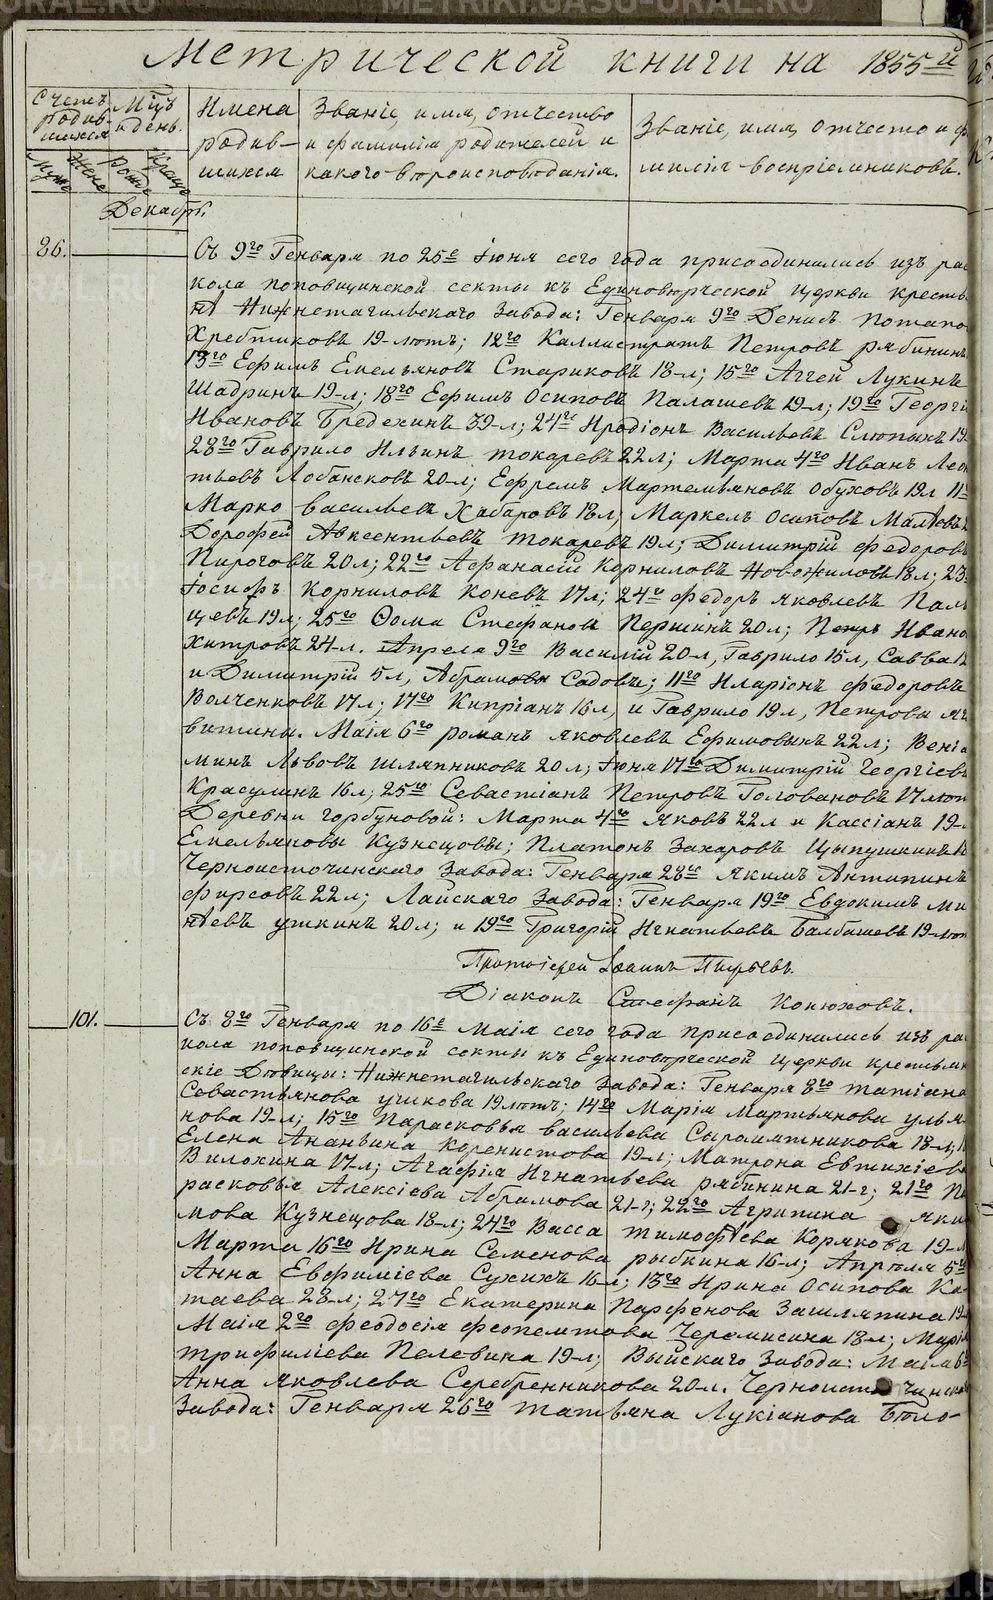 Метрической книги на 1855й
Счетъ родив-шихся
Мужс Женс
Мцъ и день.
Рожд Крещ
Имена родив-шихся
Званіе, имя, отчество и фамилія родителей и какого вѣроисповѣданія.
Званіе, имя, отчество и фа
милія воспріемниковъ.
Декабрь.
86.
Съ 9го Генваря по 25е Іюня сего года присоединились изъ рас
кола поповщинской секты къ Единовѣрческой церкви крестья
нѣ Нижнетагильскаго завода: Генваря 9го Денисъ Потапо
Хребтиковъ 19-лѣтъ; 12го Каллистратъ Петровъ рябининъ
13го Ефимъ Емельяновъ Стариковъ 18-л; 15го Аггей Лукинъ
Шадринъ 19-л; 18го Ефимъ Осиповъ Палашевъ 19-л; 19го Георгій
Ивановъ Бредехинъ 39-л; 24го Иродіонъ Васильевъ Слюпыхъ 19
28го Гаврило Ильинъ токаревъ 22л; Марта 4го Иванъ Леон
тьевъ Лобансковъ 20-л; Ефремъ Мартемьяновъ Обуховъ 19л 11
Марко васильевъ Хабаровъ 18л; Маркелъ Осиповъ
Дорофей Авксентьевъ токаревъ 19л; Димитрій Федоровъ
Пироговъ 20л; 22го Афанасій Корниловъ Новожиловъ 18л; 23
Іосифъ Корниловъ Коневъ 17л; 24го Федоръ яковлевъ Паль
цевъ 19л; 25го Ѳома Стефановъ Першинъ 20л; Петръ Ивано
Хитровъ 24-л. Апреля 9го Василій 20-л, Гаврило 15л, Савва 12
и Димитрій 5л, Абрамовы Садовы; 11го Иларіонъ Федоровъ
Волченковъ 17л; 17го Кипріанъ 16л, и Гаврило 19л, Петровы
витины. Маія 6го романъ яковлевъ Ефимовыхъ 22л; Венiа
минъ Львовъ Шляпниковъ 20л; Іюня 17го Димитрій Георгіевъ
Красулинъ 16л; 25го Севастіанъ Петровъ Головановъ 17лѣт
Деревни горбуновой: Марта 4го Яковъ 22л и Кассіанъ 19-
Емельяновы Кузнецовы; Платонъ Захаровъ Цыпушкинъ
Черноисточинскаго Завода: Генваря 28го Якимъ Антипинъ
фирсовъ 22л; Лайскаго Завода: Генваря 19го Евдокимъ Ми
нѣевъ ушкинъ 20л; и 19го Григорій Игнатьевъ Балбашевъ 19-лѣт
Протоіерей Іоаннъ Пырьевъ.
Діаконъ Стефанъ Конюховъ.
101.
Съ 8го Генваря по 16е Маія сего года присоединились изъ рас
кола поповщинской секты къ Единовѣрческой церкви крестьян
скіе Дѣвицы: Нижнетагильскаго завода: Генваря 8го татіана
Севастьянова учикова 19лѣтъ; 14го Марія Мартьянова улья
нова 19-л; 15го Парасковья васильева Сыромятникова 18-л;
Елена Ананьина Коренистова 19-л; Матрона Евтихіева
Вилохина 17-л; Агафія Игнатьева рябинина 21-г; 21го Па
расковья Алексіева Абрамова 21-г; 22го Агрипина яки
мова Кузнецова 18-л; 24го Васса тимофѣева Корякова 19-л
Марта 16го Ирина Семенова рыбкина 16-л; Апрѣля 5го
Анна Евфиміева Сухихъ 16л; 13го Ирина Осипова Ка
таева 28-л; 27го Екатерина Парфенова Зашляпина 19
Маія 2го Феодосія Феопемптова Черемисина 18-л; Марія
трифиліева Пелевина 19-л; Выйскаго Завода: Маія 6го
Анна яковлева Серебренникова 20-л. Черноисточинскаго
Завода: Генваря 26го татьяна Лукіанова Бѣло-